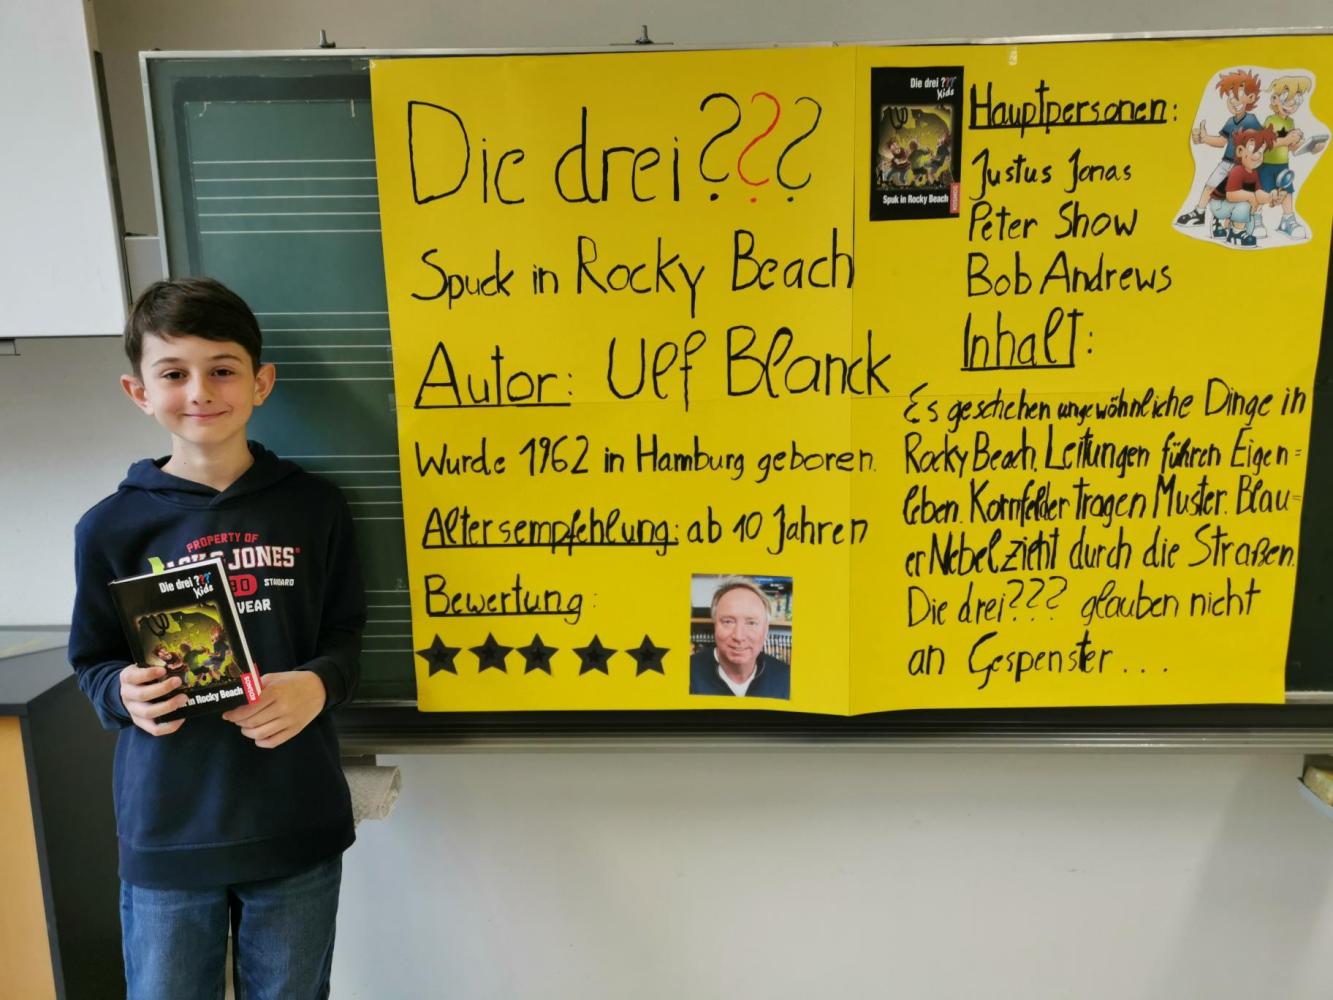 Die drei ???
Spuck in Rocky Beach
Autor: Ulf Blanck
Wurde 1962 in Hamburg geboren.
Altersempfehlung: ab 10 Jahren
Bewertung:
Die drei ???
Kids
Spuk in Rocky Beach
KOSMOS
Hauptpersonen:
Justus Jonas
Peter Show
Bob Andrews
Inhalt:
Es geschehen ungewöhnliche Dinge in
Rocky Beach. Leitungen führen Eigen=
leben. Kornfelder tragen Muster. Blau=
er Nebel zieht durch die Straßen.
Die drei??? glauben nicht
an Gespenster...
PROPERTY OF
JONES
STANDARD
WEAR
Die drei ???
Kids
in Rocky Beach
KOSMOS